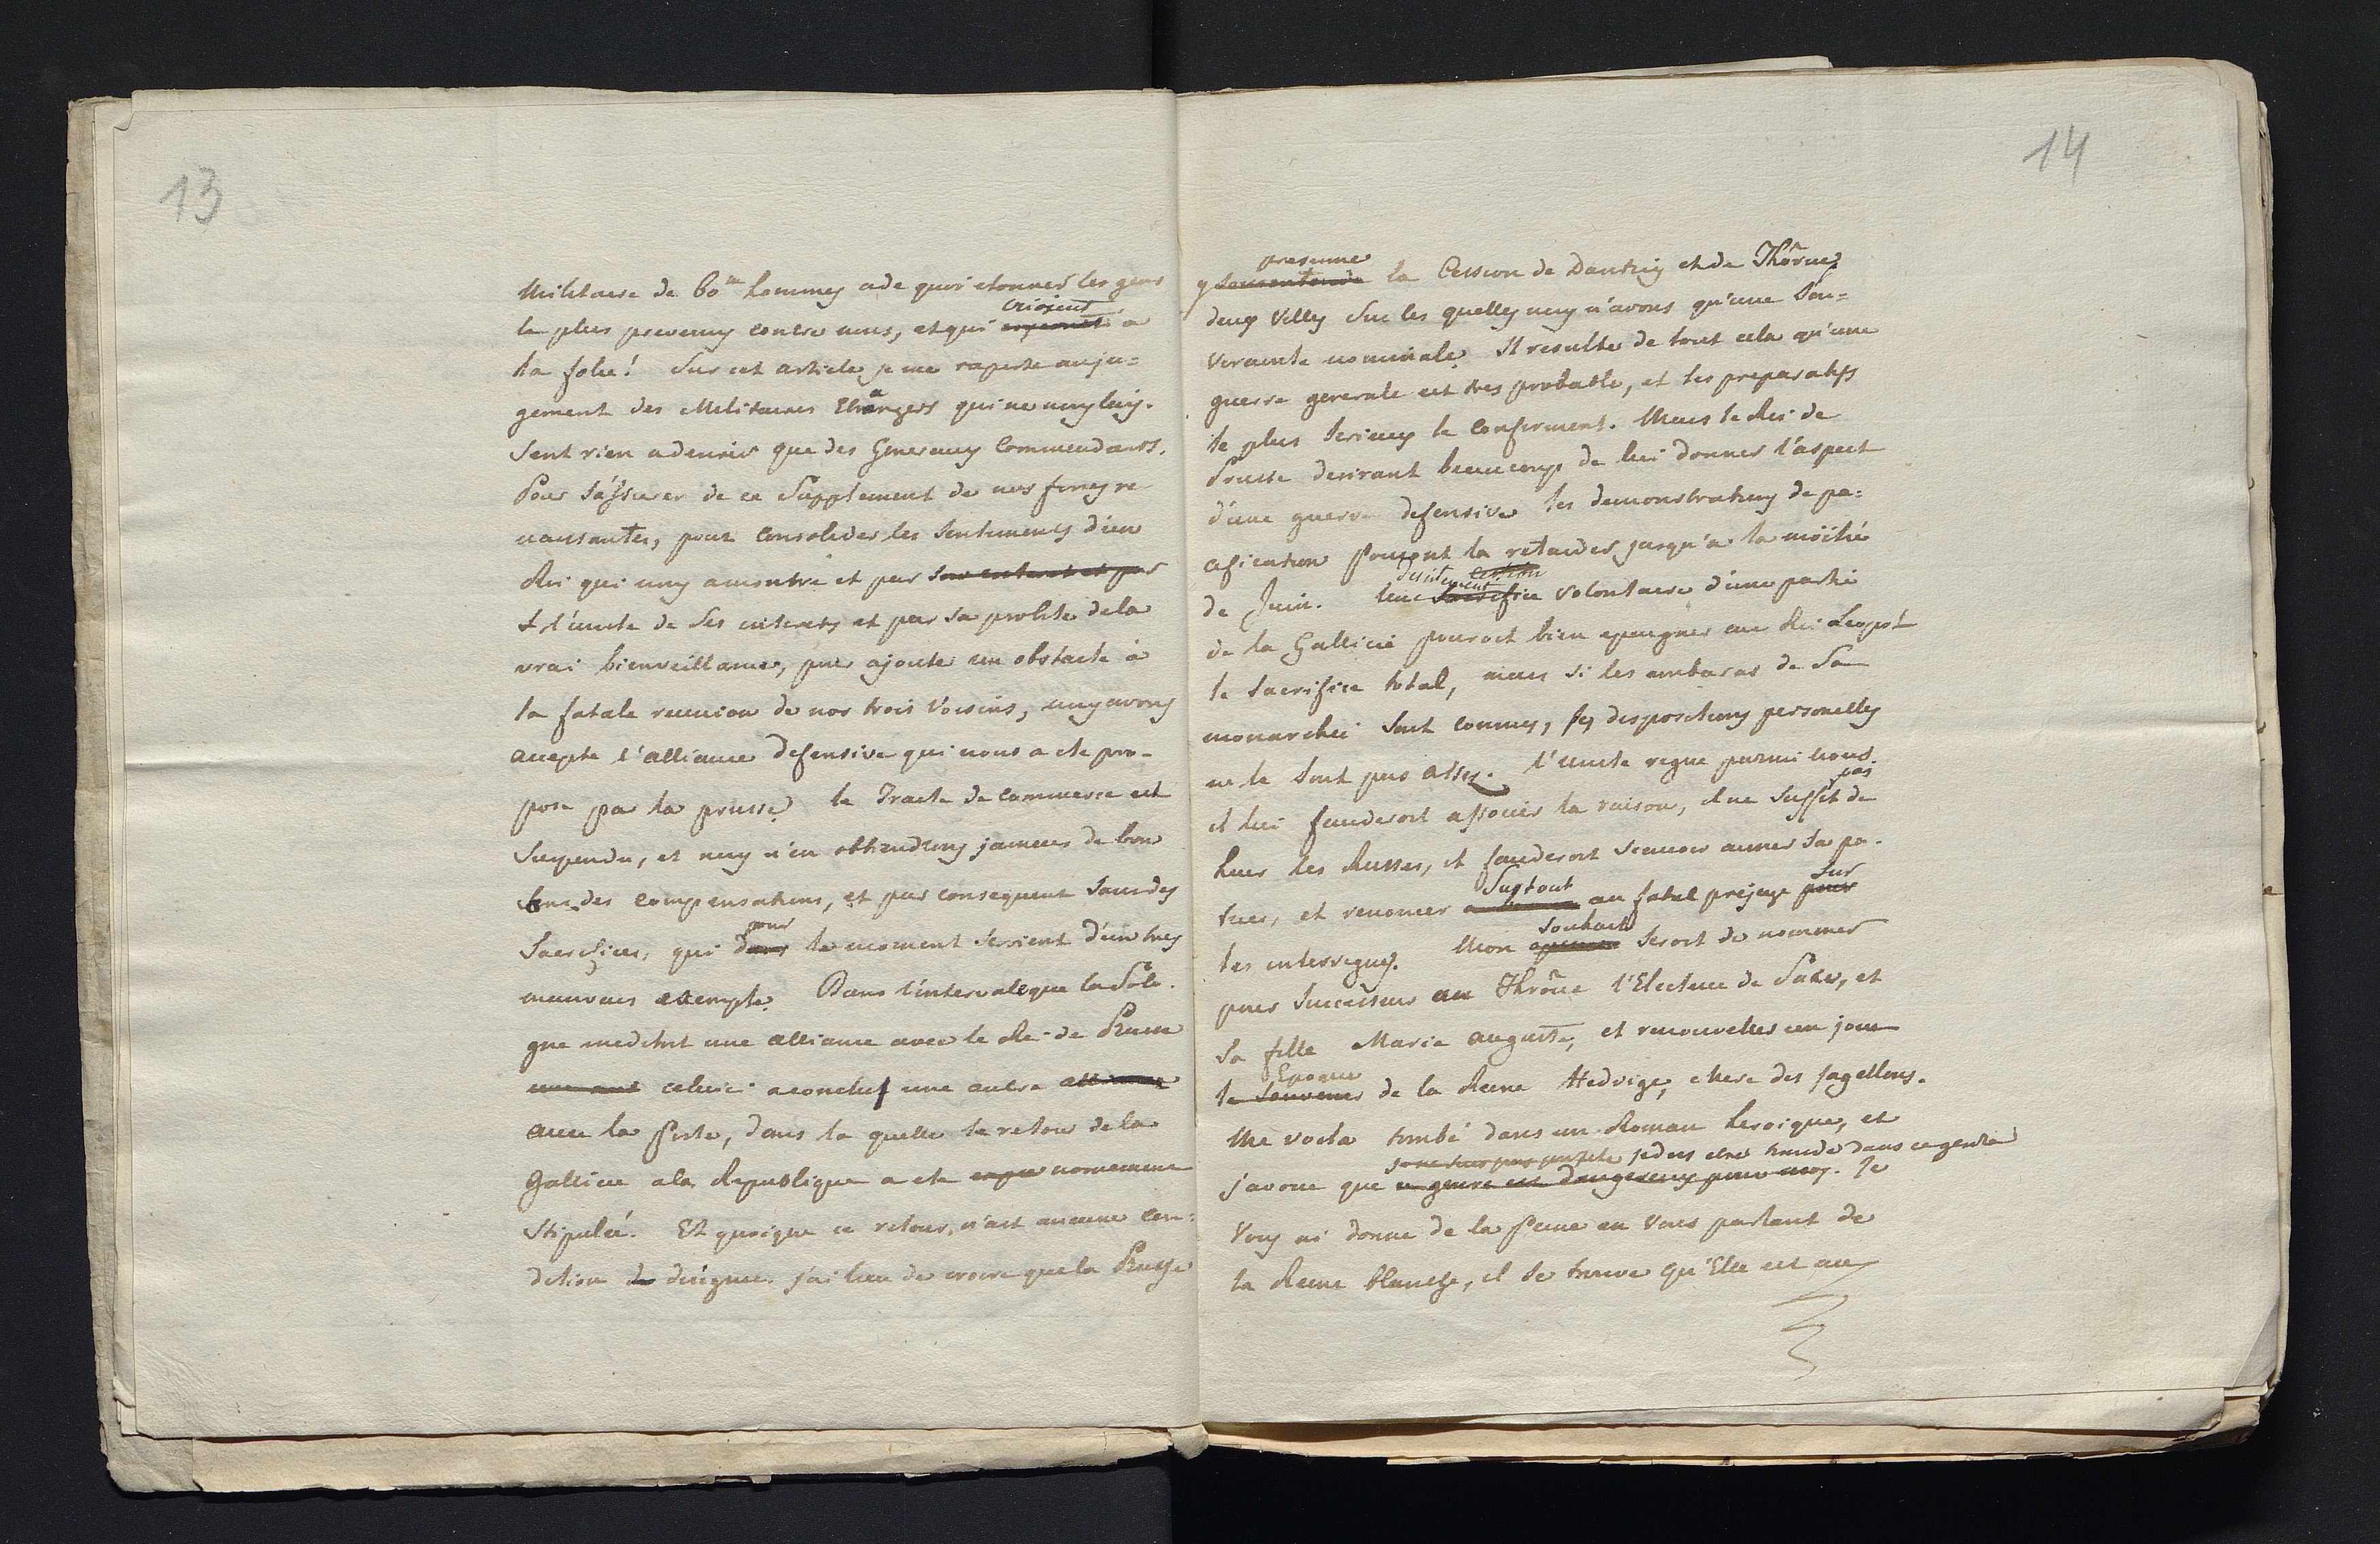 13
Militaire de 60m hommes a de quoi etonner les gens
le plus prevenus contre nous, et qui crioient a
la folie! Sur cet article je me raporte au ju=
gement des Militaires Etrangers qui ne nous lais-
sent rien a desirer que des Generaux Commendants.
Pour s'assurer de ce Supplement de nos forces re
naissantes, pour Consolider les Sentiments d'un
Roi qui nous a montré et par son interet et par
l'unité de Ses interets et par sa probité de la
vrai bienveillance, pour ajouter un obstacle à
la fatale reunion de nos trois Voisins, nous avons
accepté l'alliance defensive qui nous a ete pro-
posé par la prusse. le Traite de commerce est
Suspendu, et nous n'en obtiendrons jamais de bon
sans des compensations, et par consequent Sans des
pour
Sacrifices, qui dans le moment seroient d'un tres
mauvais exemple. Dans l'intervale que la Polo-
gne meditoit une alliance avec le Roi de Prusse
celui ci a conclu une autre alliance
avec la Porte, dans la quelle le retour de la
Gallicie a la Republique a ete nommement
Stipulée. Et quoique ce retour, n'ait aucune con=
dition de designée j'ai lieu de croire que la Prusse
14
presume
y sousentende la Cession de Dantzig et de Thorne
deux Villes Sur les quelles nous n'avons qu'une Sou=
veraineté nominale. Il resulte de tout cela qu'une
guerre generale est tres probable, et les preparatifs
le plus Serieux le confirment. Mais le Roi de
Prusse desirant beaucoup de lui donner l'aspect
d'une guerre defensive les demonstrations de pa=
cification pouront la retarder jusqu'a la moitié
desistement cession
de Juin. Une Sacrifice volontaire d'une partie
de la Gallicie pouroit bien epargner au Roi Leopol
le Sacrifice total, mais si les embaras de Sa
monarchie Sont connus, Ses dispositions personelles
ne le Sont pas assez. l'Unité regne parmi nous.
pas
il lui fauderoit associer la raison, il ne Suffit de
hair les Russes, il fauderoit Scavoir aimer Sa pa-
Surtout Sur
trie, et renoncer au fatal prejugé pour
souhait
les interregnes. Mon seroit de nommer
pour Successeur au Throne l'Electeur de Saxe, et
Sa fille Marie Auguste, et renouveller un jour
Epoque
le Souvenir de la Reine Hedvige, chere des Jagellons.
Me voila tombé dans un Roman heroique, et
je ne suis pas je dois etre timide dans ce genre
j'avoue que ce genre est dangereux pour moy. Je
Vous ai donné de la peine en Vous parlant de
la Reine blanche, il se trouve qu'Elle est au